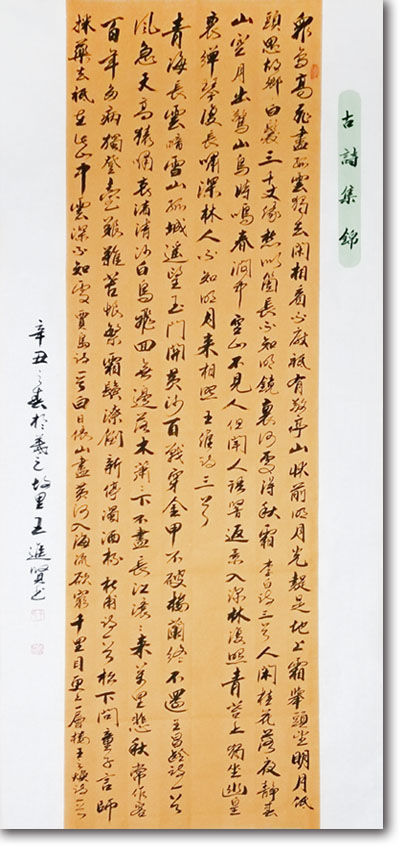 古詩集錦
衆鳥高飛盡孤雲獨去閑相看不厭祇有敬亭山牀前明月光疑是地上霜舉頭望明月低
頭思故鄉白髮三千丈緣愁似箇長不知明鏡裏何處得秋霜李白詩三首人閑桂花落夜靜春
山空月出驚山鳥時鳴春澗中空山不見人但聞人語響返景入深林復照青苔上獨坐幽篁
裏彈琴復長嘯深林人不知明月來相照王維詩三首
青海長雲暗雪山孤城遙望玉門關黃沙百戰穿金甲不破樓蘭終不還王昌齡詩一首
風急天高猿嘯哀渚清沙白鳥飛回無邊落木蕭々下不盡長江滾々來萬里悲秋常作客
百年多病獨登臺艱難苦恨繁霜鬢潦倒新停濁酒杯杜甫詩一首松下問童子言師
採藥去祇在此山中雲深不知處賈島詩一首白日依山盡黃河入海流欲窮千里目更上一層樓王之渙詩一首
辛丑之春於羲之故里王進賢書